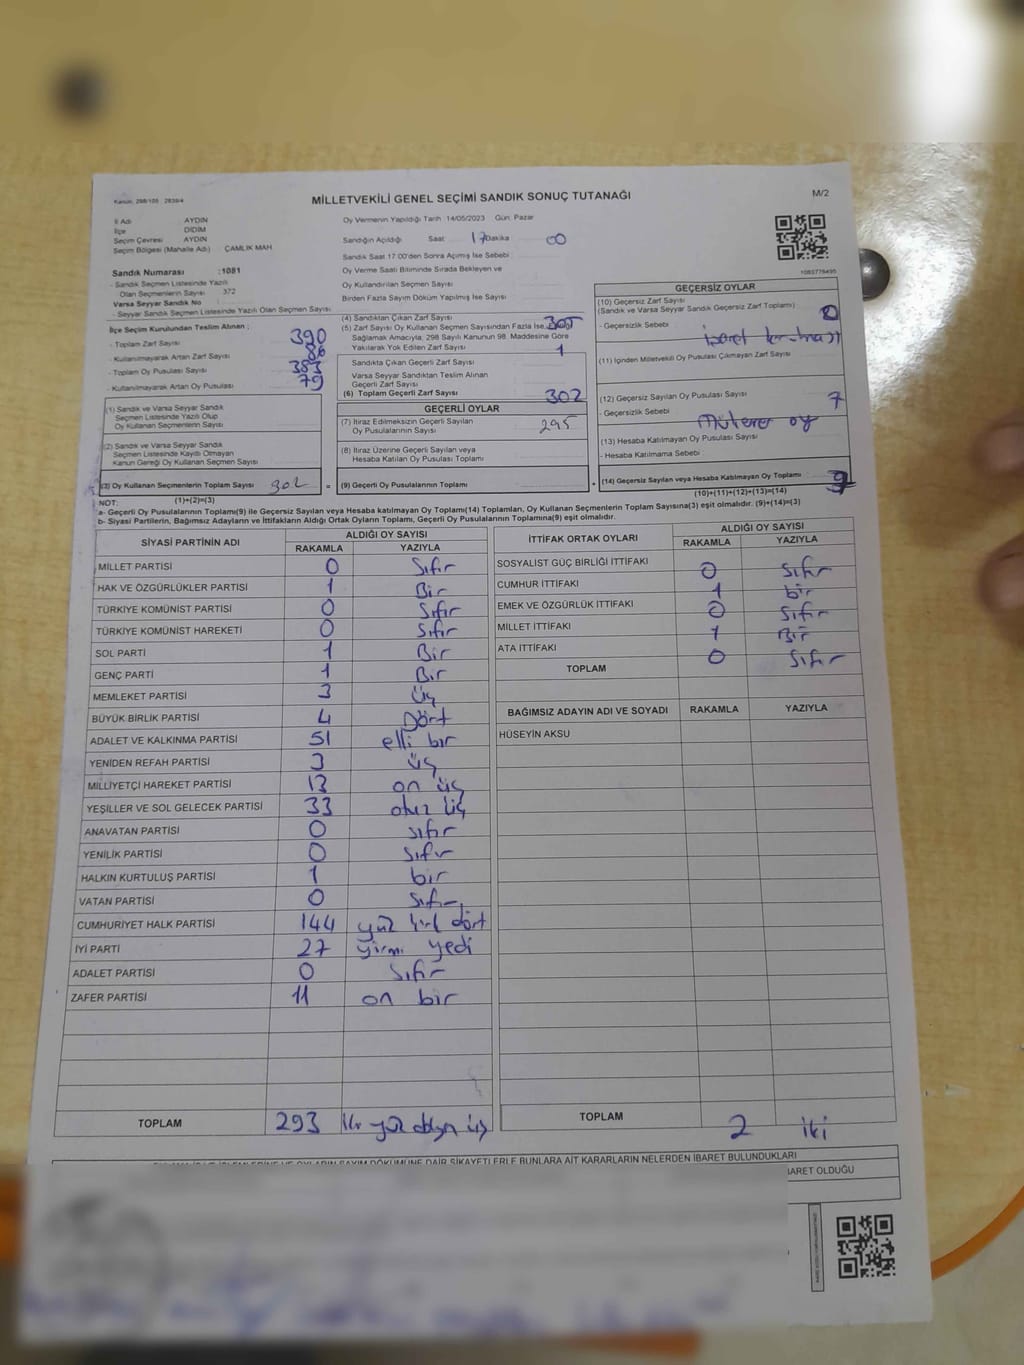 Kanun: 298/105 2839/4
MİLLETVEKİLİ GENEL SEÇİMİ SANDIK SONUÇ TUTANAĞI
M/2
İl Adı AYDIN
İlçe DİDİM
Seçim Çevresi AYDIN
Seçim Bölgesi (Mahalle Adı) ÇAMLIK MAH.
Sandık Numarası :1081
- Sandık Seçmen Listesinde Yazılı
Olan Seçmenlerin Sayısı 372
Varsa Seyyar Sandık No
- Seyyar Sandık Seçmen Listesinde Yazılı Olan Seçmen Sayısı
İlçe Seçim Kurulundan Teslim Alınan ;
- Toplam Zarf Sayısı 390
- Kullanılmayarak Artan Zarf Sayısı 86
- Toplam Oy Pusulası Sayısı 383
- Kullanılmayarak Artan Oy Pusulası 79
(1) Sandık ve Varsa Seyyar Sandık
Seçmen Listesinde Yazılı Olup
Oy Kullanan Seçmenlerin Sayısı
(2) Sandık ve Varsa Seyyar Sandık
Seçmen Listesinde Kayıtlı Olmayan
Kanun Gereği Oy Kullanan Seçmen Sayısı
(3) Oy Kullanan Seçmenlerin Toplam Sayısı 302 =
Oy Vermenin Yapıldığı Tarih 14/05/2023 Gün: Pazar
Sandığın Açıldığı Saat: 17 Dakika 00
Sandık Saat 17:00'den Sonra Açılmış İse Sebebi
Oy Verme Saati Bitiminde Sırada Bekleyen ve
Oy Kullandırılan Seçmen Sayısı
Birden Fazla Sayım Döküm Yapılmış İse Sayısı
(4) Sandıktan Çıkan Zarf Sayısı 305
(5) Zarf Sayısı Oy Kullanan Seçmen Sayısından Fazla İse, Eşitliği
Sağlamak Amacıyla, 298 Sayılı Kanunun 98. Maddesine Göre
Yakılarak Yok Edilen Zarf Sayısı 1
Sandıkta Çıkan Geçerli Zarf Sayısı
Varsa Seyyar Sandıktan Teslim Alınan
Geçerli Zarf Sayısı
(6) Toplam Geçerli Zarf Sayısı 302
GEÇERLİ OYLAR
(7) İtiraz Edilmeksizin Geçerli Sayılan
Oy Pusulalarının Sayısı 295
(8) İtiraz Üzerine Geçerli Sayılan veya
Hesaba Katılan Oy Pusulası Toplamı
(9) Geçerli Oy Pusulalarının Toplamı +
1083776495
GEÇERSİZ OYLAR
(10) Geçersiz Zarf Sayısı
(Sandık ve Varsa Seyyar Sandık Geçersiz Zarf Toplamı) 0
- Geçersizlik Sebebi
(11) İçinden Milletvekili Oy Pusulası Çıkmayan Zarf Sayısı
(12) Geçersiz Sayılan Oy Pusulası Sayısı 7
- Geçersizlik Sebebi oy
(13) Hesaba Katılmayan Oy Pusulası Sayısı
- Hesaba Katılmama Sebebi
(14) Geçersiz Sayılan veya Hesaba Katılmayan Oy Toplamı
(10)+(11)+(12)+(13)=(14)
NOT: (1)+(2)=(3)
a- Geçerli Oy Pusulalarının Toplamı(9) ile Geçersiz Sayılan veya Hesaba katılmayan Oy Toplamı(14) Toplamları, Oy Kullanan Seçmenlerin Toplam Sayısına(3) eşit olmalıdır. (9)+(14)=(3)
b- Siyasi Partilerin, Bağımsız Adayların ve İttifakların Aldığı Ortak Oyların Toplamı, Geçerli Oy Pusulalarının Toplamına(9) eşit olmalıdır.
SİYASİ PARTİNİN ADI ALDIĞI OY SAYISI
RAKAMLA YAZIYLA
MİLLET PARTİSİ 0 Sıfır
HAK VE ÖZGÜRLÜKLER PARTİSİ 1 Bir
TÜRKİYE KOMÜNİST PARTİSİ 0 Sıfır
TÜRKİYE KOMÜNİST HAREKETİ 0 Sıfır
SOL PARTİ 1 Bir
GENÇ PARTİ 1 Bir
MEMLEKET PARTİSİ 3 üç
BÜYÜK BİRLİK PARTİSİ 4 Dört
ADALET VE KALKINMA PARTİSİ 51 elli bir
YENİDEN REFAH PARTİSİ 3 üç
MİLLİYETÇİ HAREKET PARTİSİ 13 on üç
YEŞİLLER VE SOL GELECEK PARTİSİ 33 otuz üç
ANAVATAN PARTİSİ 0 sıfır
YENİLİK PARTİSİ 0 Sıfır
HALKIN KURTULUŞ PARTİSİ 1 bir
VATAN PARTİSİ 0 Sıfır
CUMHURİYET HALK PARTİSİ 144 yüz kırk dört
İYİ PARTİ 27 yirmi yedi
ADALET PARTİSİ 0 Sıfır
ZAFER PARTİSİ 11 on bir
TOPLAM 293 iki yüz doksan üç
İTTİFAK ORTAK OYLARI ALDIĞI OY SAYISI
RAKAMLA YAZIYLA
SOSYALİST GÜÇ BİRLİĞİ İTTİFAKI 0 Sıfır
CUMHUR İTTİFAKI 1 bir
EMEK VE ÖZGÜRLÜK İTTİFAKI 0 Sıfır
MİLLET İTTİFAKI 1 Bir
ATA İTTİFAKI 0 Sıfır
TOPLAM
BAĞIMSIZ ADAYIN ADI VE SOYADI RAKAMLA YAZIYLA
HÜSEYİN AKSU
TOPLAM 2 iki
DÖKÜMÜNE DAİR ŞİKAYETLERLE BUNLARA AİT KARARLARIN NELERDEN İBARET BULUNDUKLARI
İBARET OLDUĞU